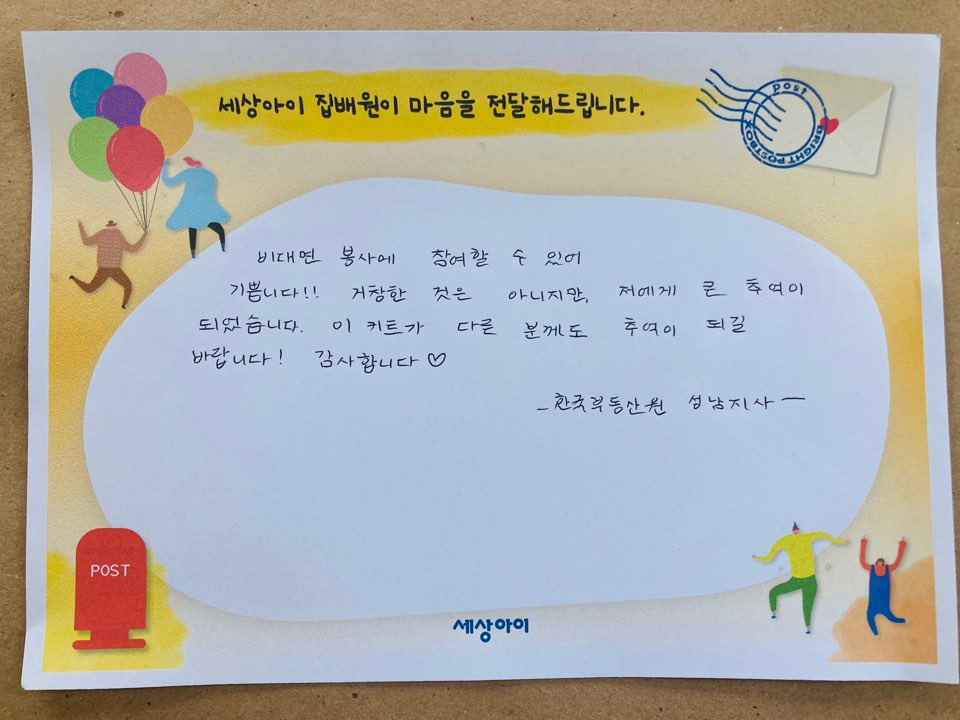 세상아이 집배원이 마음을 전달해드립니다.
post
BRIGHT POSTBOX
비대면 봉사에 참여할 수 있어
기쁩니다!! 거창한 것은 아니지만, 저에게 큰 추억이
되었습니다. 이 키트가 다른 분께도 추억이 되길
바랍니다! 감사합니다♡
- 한국부동산원 성남지사 -
POST
세상아이